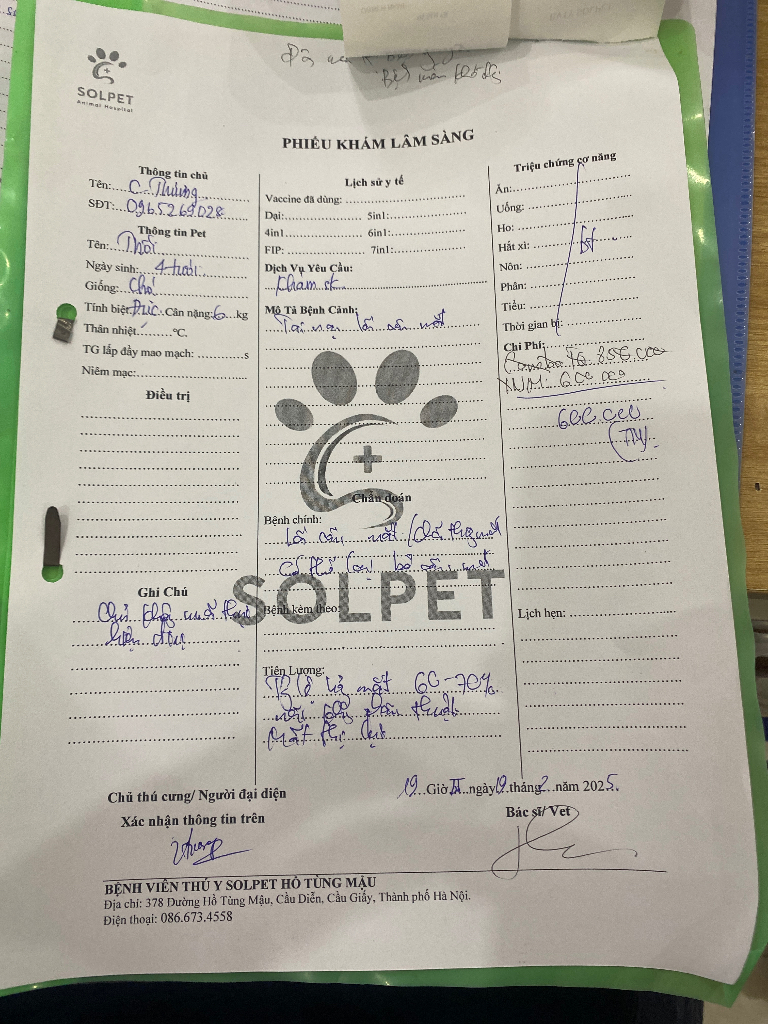 SOLPET
Animal Hospital
PHIẾU KHÁM LÂM SÀNG
Thông tin chủ
Tên: C. Thương
SĐT: 0965269028
Thông tin Pet
Tên: Thôi
Ngày sinh: 4 tuổi
Giống: Chó
Tính biệt: Đực Cân nặng: 6 kg
Thân nhiệt °C.
TG lấp đầy mao mạch: s
Niêm mạc:
Điều trị
Ghi Chú
Lịch sử y tế
Vaccine đã dùng:
Dại: 5in1:
4in1 6in1:
FIP: 7in1:
Dịch Vụ Yêu Cầu:
Khám sk
Mô Tả Bệnh Cảnh:
Tai nạn lồi cầu mắt
Chẩn đoán
Bệnh chính:
Lồi cầu mắt
Có thể loại bỏ cầu mắt
SOLPET
Bệnh kèm theo:
Tiên Lượng:
mắt 60-70%
phẫu thuật
mất thị lực
Triệu chứng cơ năng
Ăn:
Uống:
Ho:
Hắt xì: bt
Nôn:
Phân:
Tiểu:
Thời gian bị:
Chi Phí:
850.000
XNM: 600.000
600.000
(TM)
Lịch hẹn:
19 Giờ ngày 19 tháng 2 năm 2025.
Chủ thú cưng/ Người đại diện
Xác nhận thông tin trên
Bác sĩ/ Vet
BỆNH VIỆN THÚ Y SOLPET HỒ TÙNG MẬU
Địa chỉ: 378 Đường Hồ Tùng Mậu, Cầu Diễn, Cầu Giấy, Thành phố Hà Nội.
Điện thoại: 086.673.4558